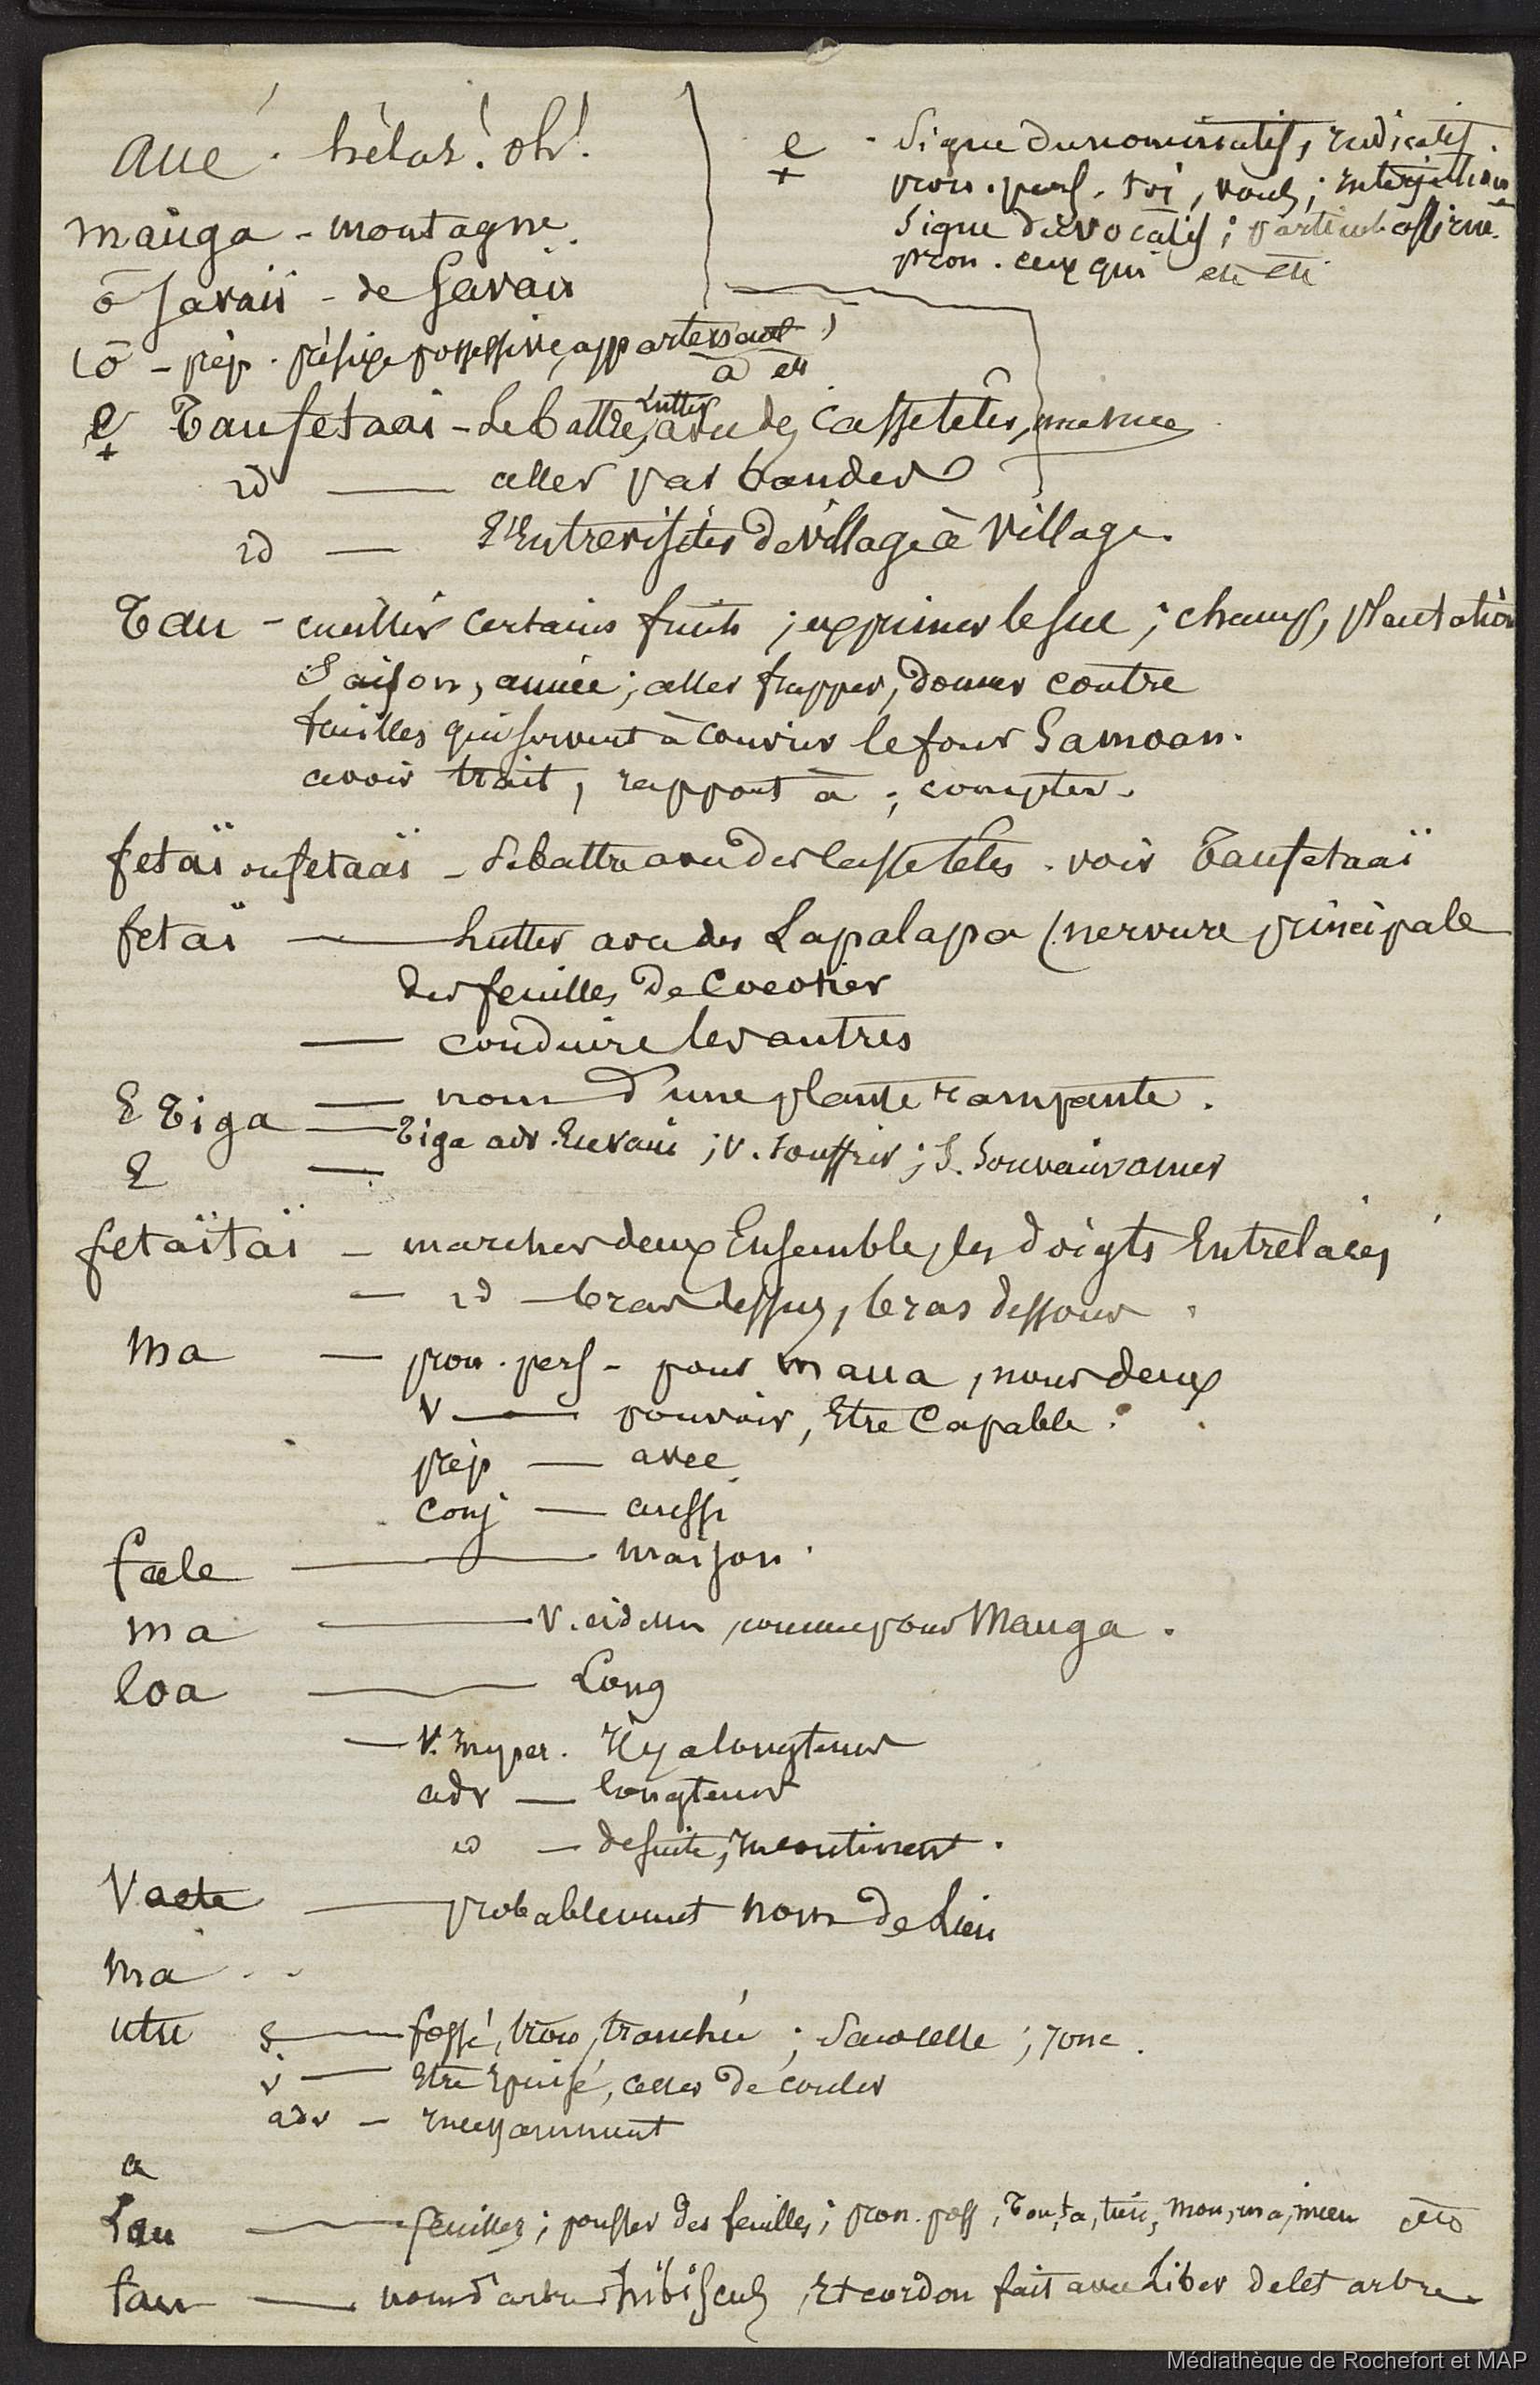 aué - hélas! oh!
mauga - montagne.
ō Savaiï - de Savaiï
(ō - prép. préfixe possessive, appartenant)
à etc
e - Signe du nominatif, radicatif.
+ pron. pers. toi, vous; interjection
Signe du vocatif; particule affirme.
pron. ceux qui etc etc
e Taufetaai - Se battre, lutter avec des Cassetêtes, massues
+
id — aller par bandes
id — S'Entrevisiter de village à village.
Tau - cueillir certains fruits; exprimer le suc; champ, plantation
Saison, année; aller frapper, donner contre
feuilles qui servent à couvrir le four Samoan.
avoir trait, rapport à; compter.
fetaï ou fetaaï - Se battre avec des Cassetêtes. voir Taufetaaï
fetaï — Lutter avec des Lapalapa (nervure principale
des feuilles de Cocotier
— conduire les autres
— nom d'une plante rampante.
E Tiga — Tiga adv. En vain; v. souffrir; S. Souvenir amer
E —
fetaïtaï - marcher deux Ensemble, les doigts Entrelacés
- id - bras dessus, bras dessous
ma — pron. pers - pour maua, nous deux
v — pouvoir, Etre Capable.
prép — avec
conj — aussi
fale — maison.
ma — V. ci dessus, comme pour Mauga.
loa — Long
— V. Imper. Il y a longtems
adv — longtems
id — de suite, Incontinent.
Vaete — probablement nom de Lieu
ma
utu S — fossé, trou, tranchée; Sarcelle; jonc.
v — Etre Epuisé, cesser de couler
adv — Incessamment
a
Lau — feuilles; pousser des feuilles; pron. poss, Ton, ta, tien, Mon, ma, mien etc
fau — nom d'arbre hibiscus, Et cordon fait avec Liber de cet arbre.
Médiathèque de Rochefort et MAP